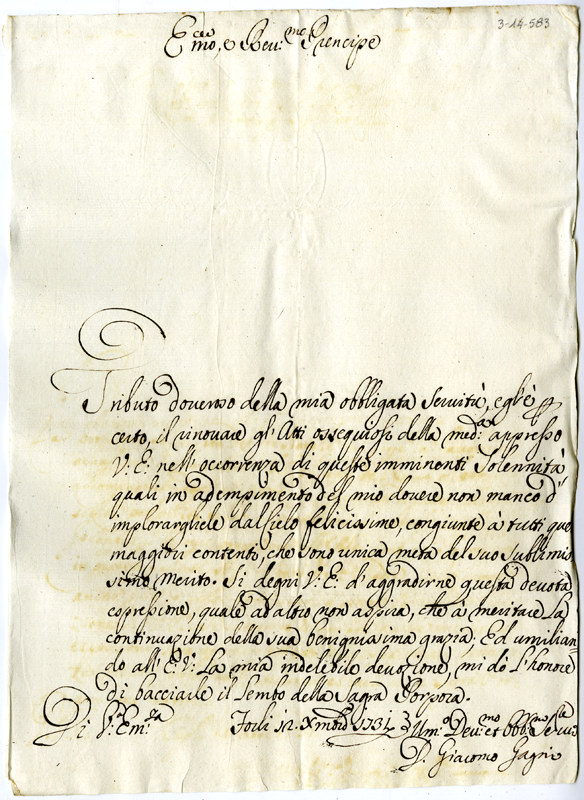 3-14-583
E.mo, e Reu.mo Prencipe
Tributo doveroso della mia obbligata servitù, egl'è p
certo, il rinovare gl'Atti ossequiosi della med.ma appresso
V: E: nell'occorrenza di queste imminenti Solennità
quali in adempimento del mio dovere non manco d'
implorargliele dal Cielo felicissime, congiunte à tutti que
maggiori contenti, che sono unica meta del suo sublimis
simo Merito. Si degni V: E: d'aggradirne questa devota
espressione, quale ad altro non aspira, che à meritare La
continuazione della sua benignissima grazia; Ed umilian
do all'E: V: La mia indelebile devozione, mi dò L'honore
di bacciarle il Lembo della Sagra Porpora.
Di V.a Em.za Forlì 12. Xmbre 1731 Um.o Dev.mo et Obb.mo
D. Giacomo